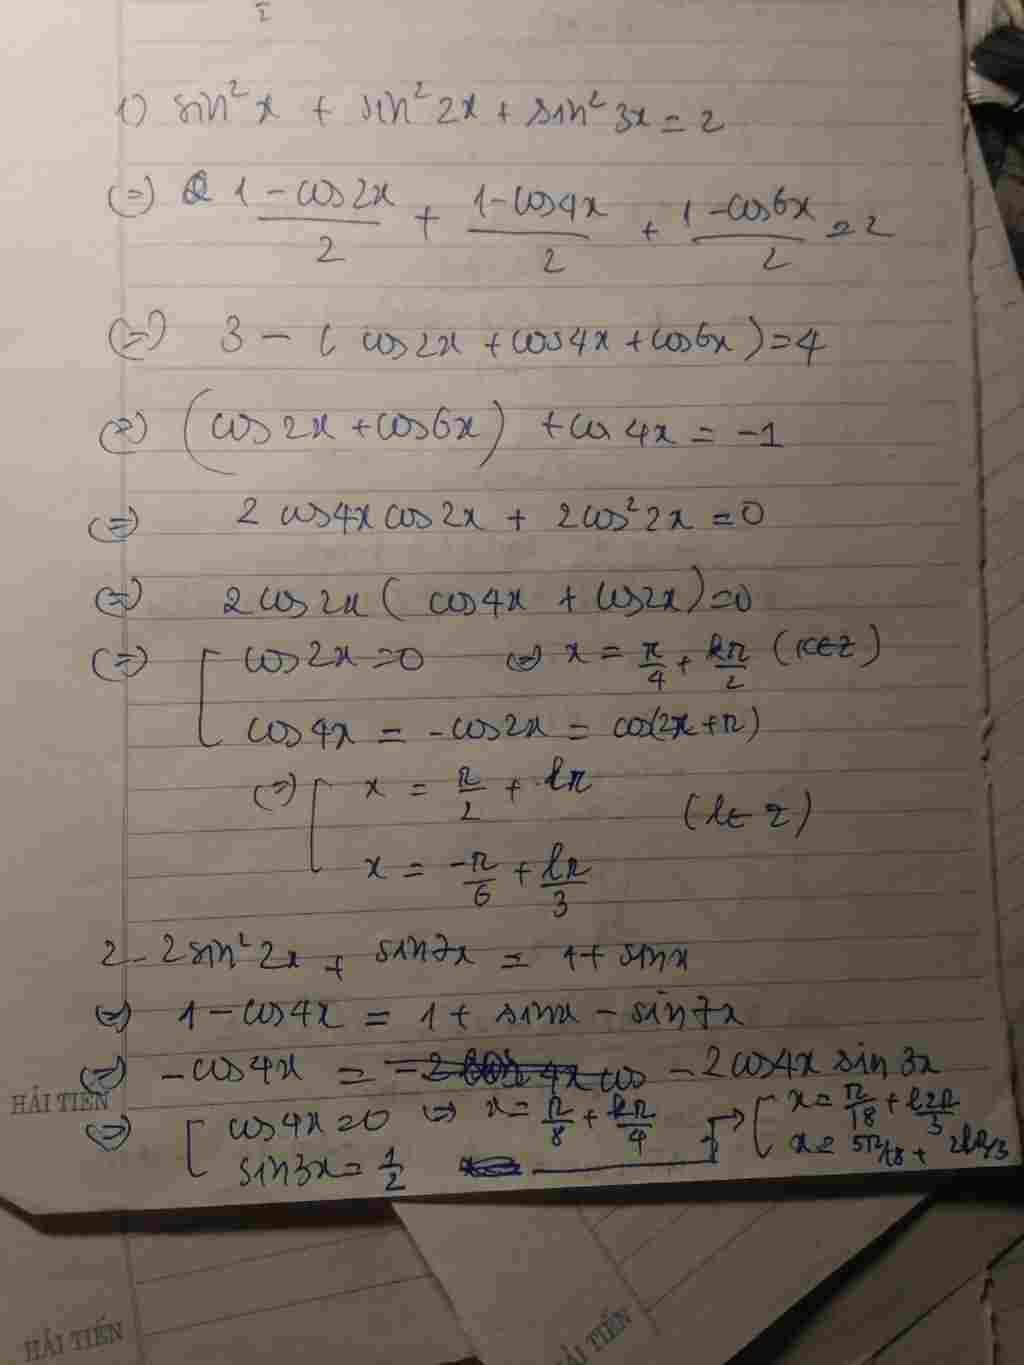 1) sin²x + sin²2x + sin²3x = 2
(=) 1 - cos2x/2 + 1 - cos4x/2 + 1 - cos6x/2 = 2
(=) 3 - ( cos2x + cos4x + cos6x ) = 4
(=) ( cos2x + cos6x ) + cos4x = -1
(=) 2 cos4x cos2x + 2cos²2x = 0
(=) 2cos2x ( cos4x + cos2x ) = 0
(=) [ cos2x = 0 (=) x = π/4 + kπ/2 (k∈Z)
cos4x = -cos2x = cos(2x+π)
(=) [ x = π/2 + lπ
(l∈Z)
x = -π/6 + lπ/3
2 - 2sin²2x + sin7x = 1 + sinx
(=) 1 - cos4x = 1 + sinx - sin7x
(=) -cos4x = -2cos4x sin3x
(=) [ cos4x = 0 (=) x = π/8 + kπ/4 → [ x = π/18 + k2π/3
sin3x = 1/2 x = 5π/18 + 2kπ/3
HẢI TIẾN
HẢI TIẾN
HẢI TIẾN